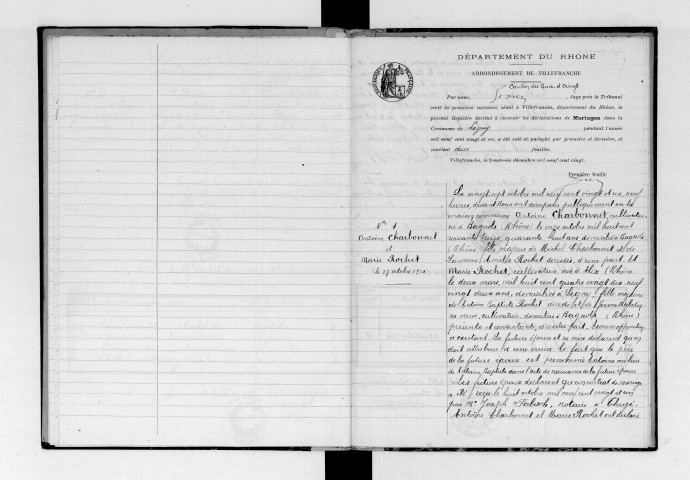 DÉPARTEMENT DU RHÔNE
ARRONDISSEMENT DE VILLEFRANCHE
Canton du Bois d'Oingt
Par nous, Juge près le Tribunal
civil de première instance, séant à Villefranche, département du Rhône, le
présent Registre destiné à recevoir les déclarations de Mariages dans la
Commune de Légny pendant l'année
mil neuf cent vingt et un, a été coté et paraphé par première et dernière, et
contient deux feuilles.
Villefranche, le trente-un décembre mil neuf cent vingt.
Première feuille
N° 1
Antoine Charbonnet
et
Marie Rochet
le 27 octobre 1921
Le vingt sept octobre mil neuf cent vingt et un, neuf
heures, devant Nous ont comparu publiquement en la
maison commune Antoine CHARBONNET, cultivateur
né à Bagnols (Rhône) le onze octobre mil huit cent
soixante treize, quarante huit ans, domicilié à Bagnols
(Rhône) fils majeur de Michel Charbonnet et de
Laurence Amélie Rochet décédés, d'une part. Et
Marie Rochet, cultivatrice née à Alix (Rhône
le deux mars, mil huit cent quatre vingt dix neuf
vingt deux ans, domiciliée à Légny, fille majeure
de Baptiste Rochet décédé et de Jeanne
sa veuve, cultivatrice, domiciliée à Bagnols (Rhône)
présente et consentante, d'autre part. Aucune opposition
n'existant. La future épouse et sa mère déclarent qu'on
doit attribuer à une erreur le fait que le père
de la future épouse est prénommé Antoine au lieu
de Baptiste dans l'acte de naissance de la future épouse
Les futurs époux déclarent qu'un contrat de mariage
a été reçu le huit octobre mil neuf cent vingt et un
par Me Joseph notaire à
Antoine Charbonnet et Marie Rochet ont déclaré